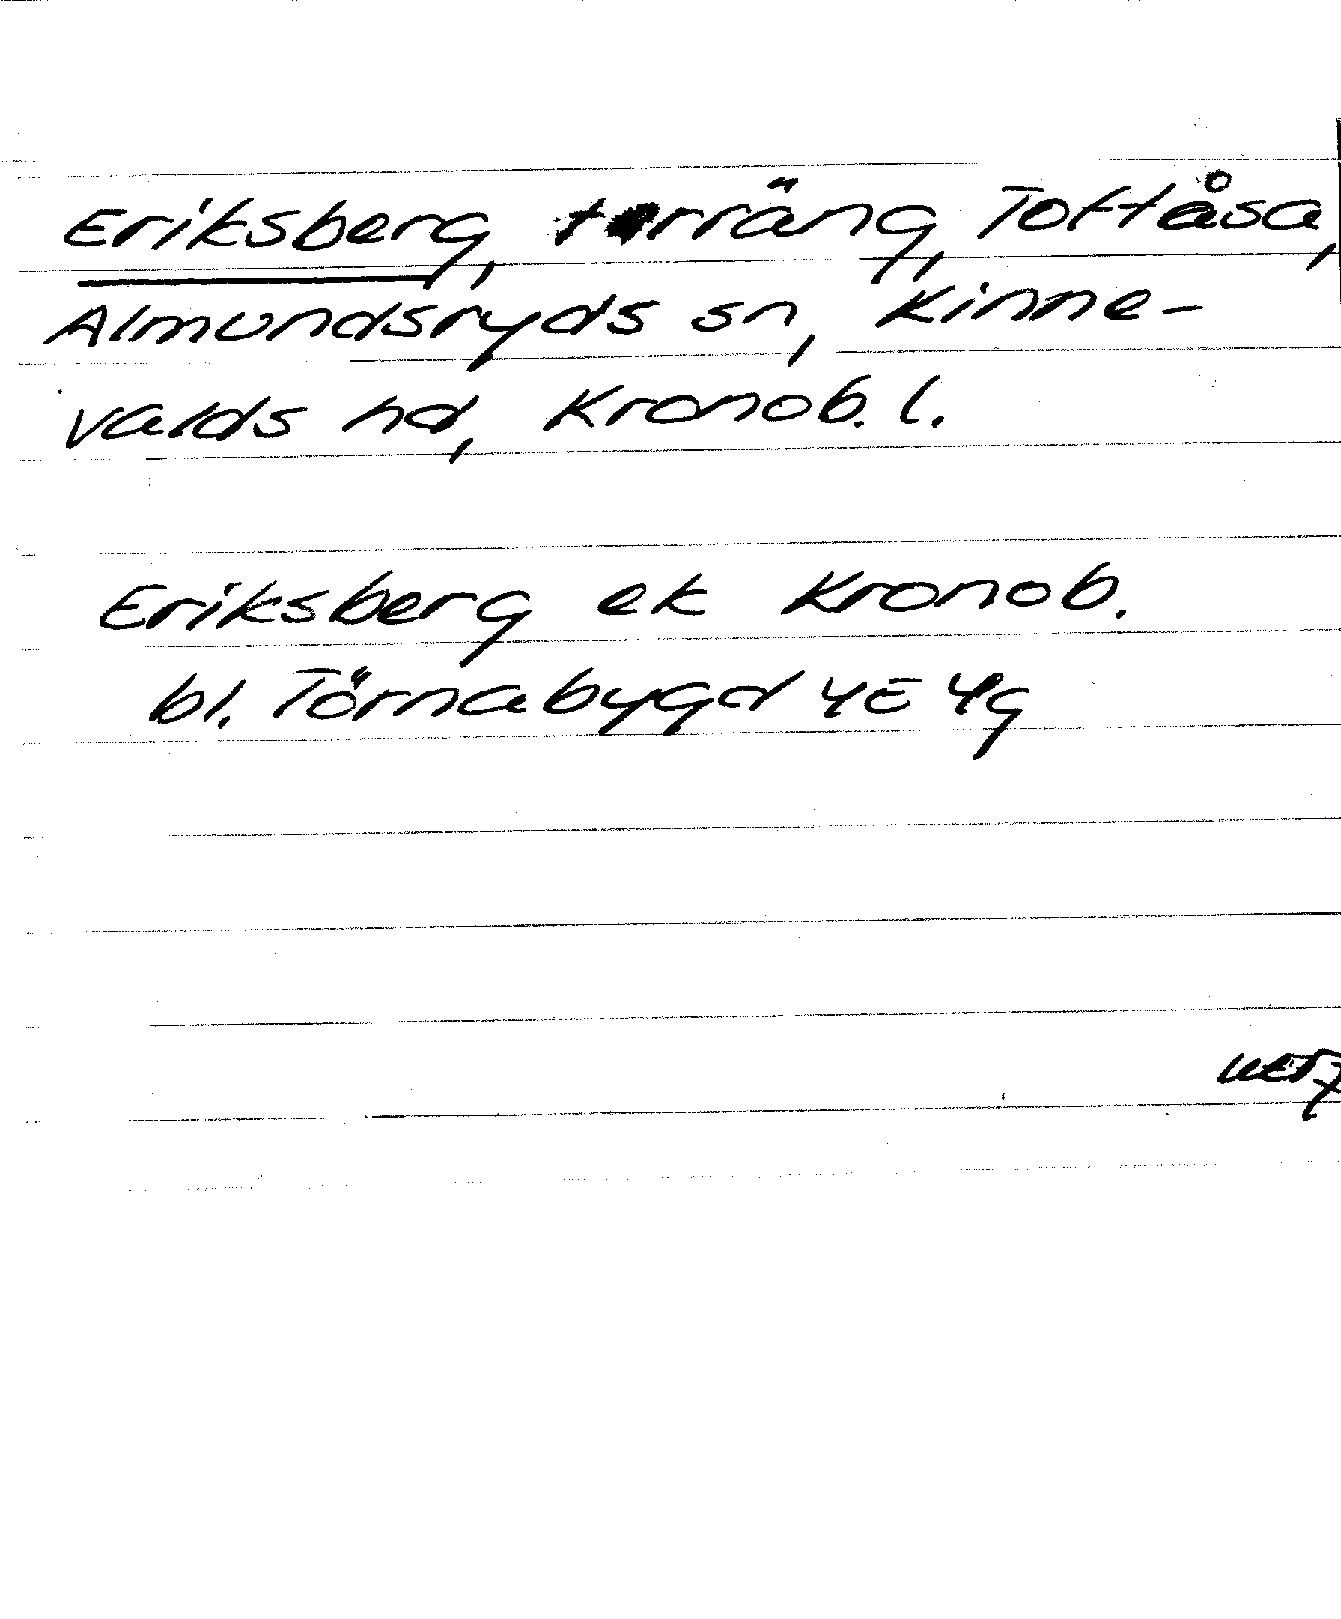 Eriksberg, terräng, Toftåsa,
Almundsryds sn, Kinne-
valds hd, Kronob. l.
Eriksberg ek Kronob.
bl. Törnabygd 4E 4g